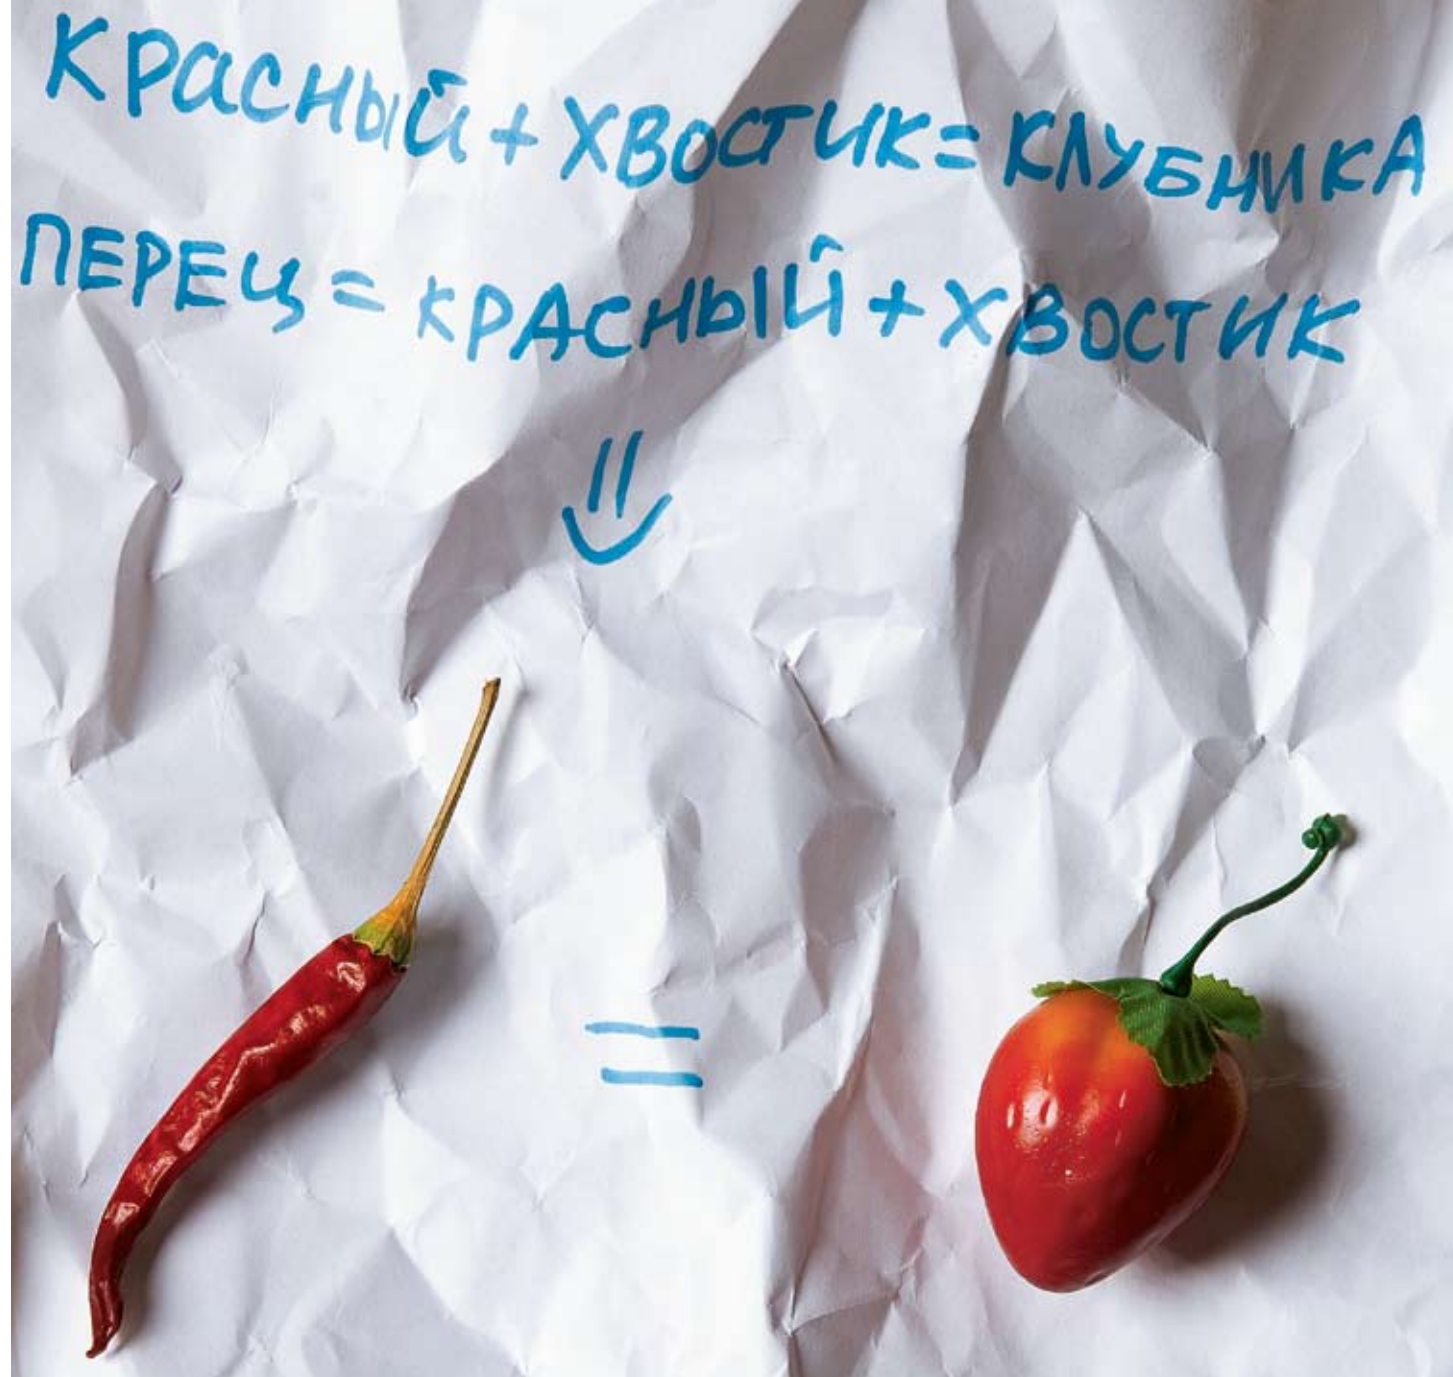 Красный + хвостик = клубника
перец = красный + хвостик
⇓
=